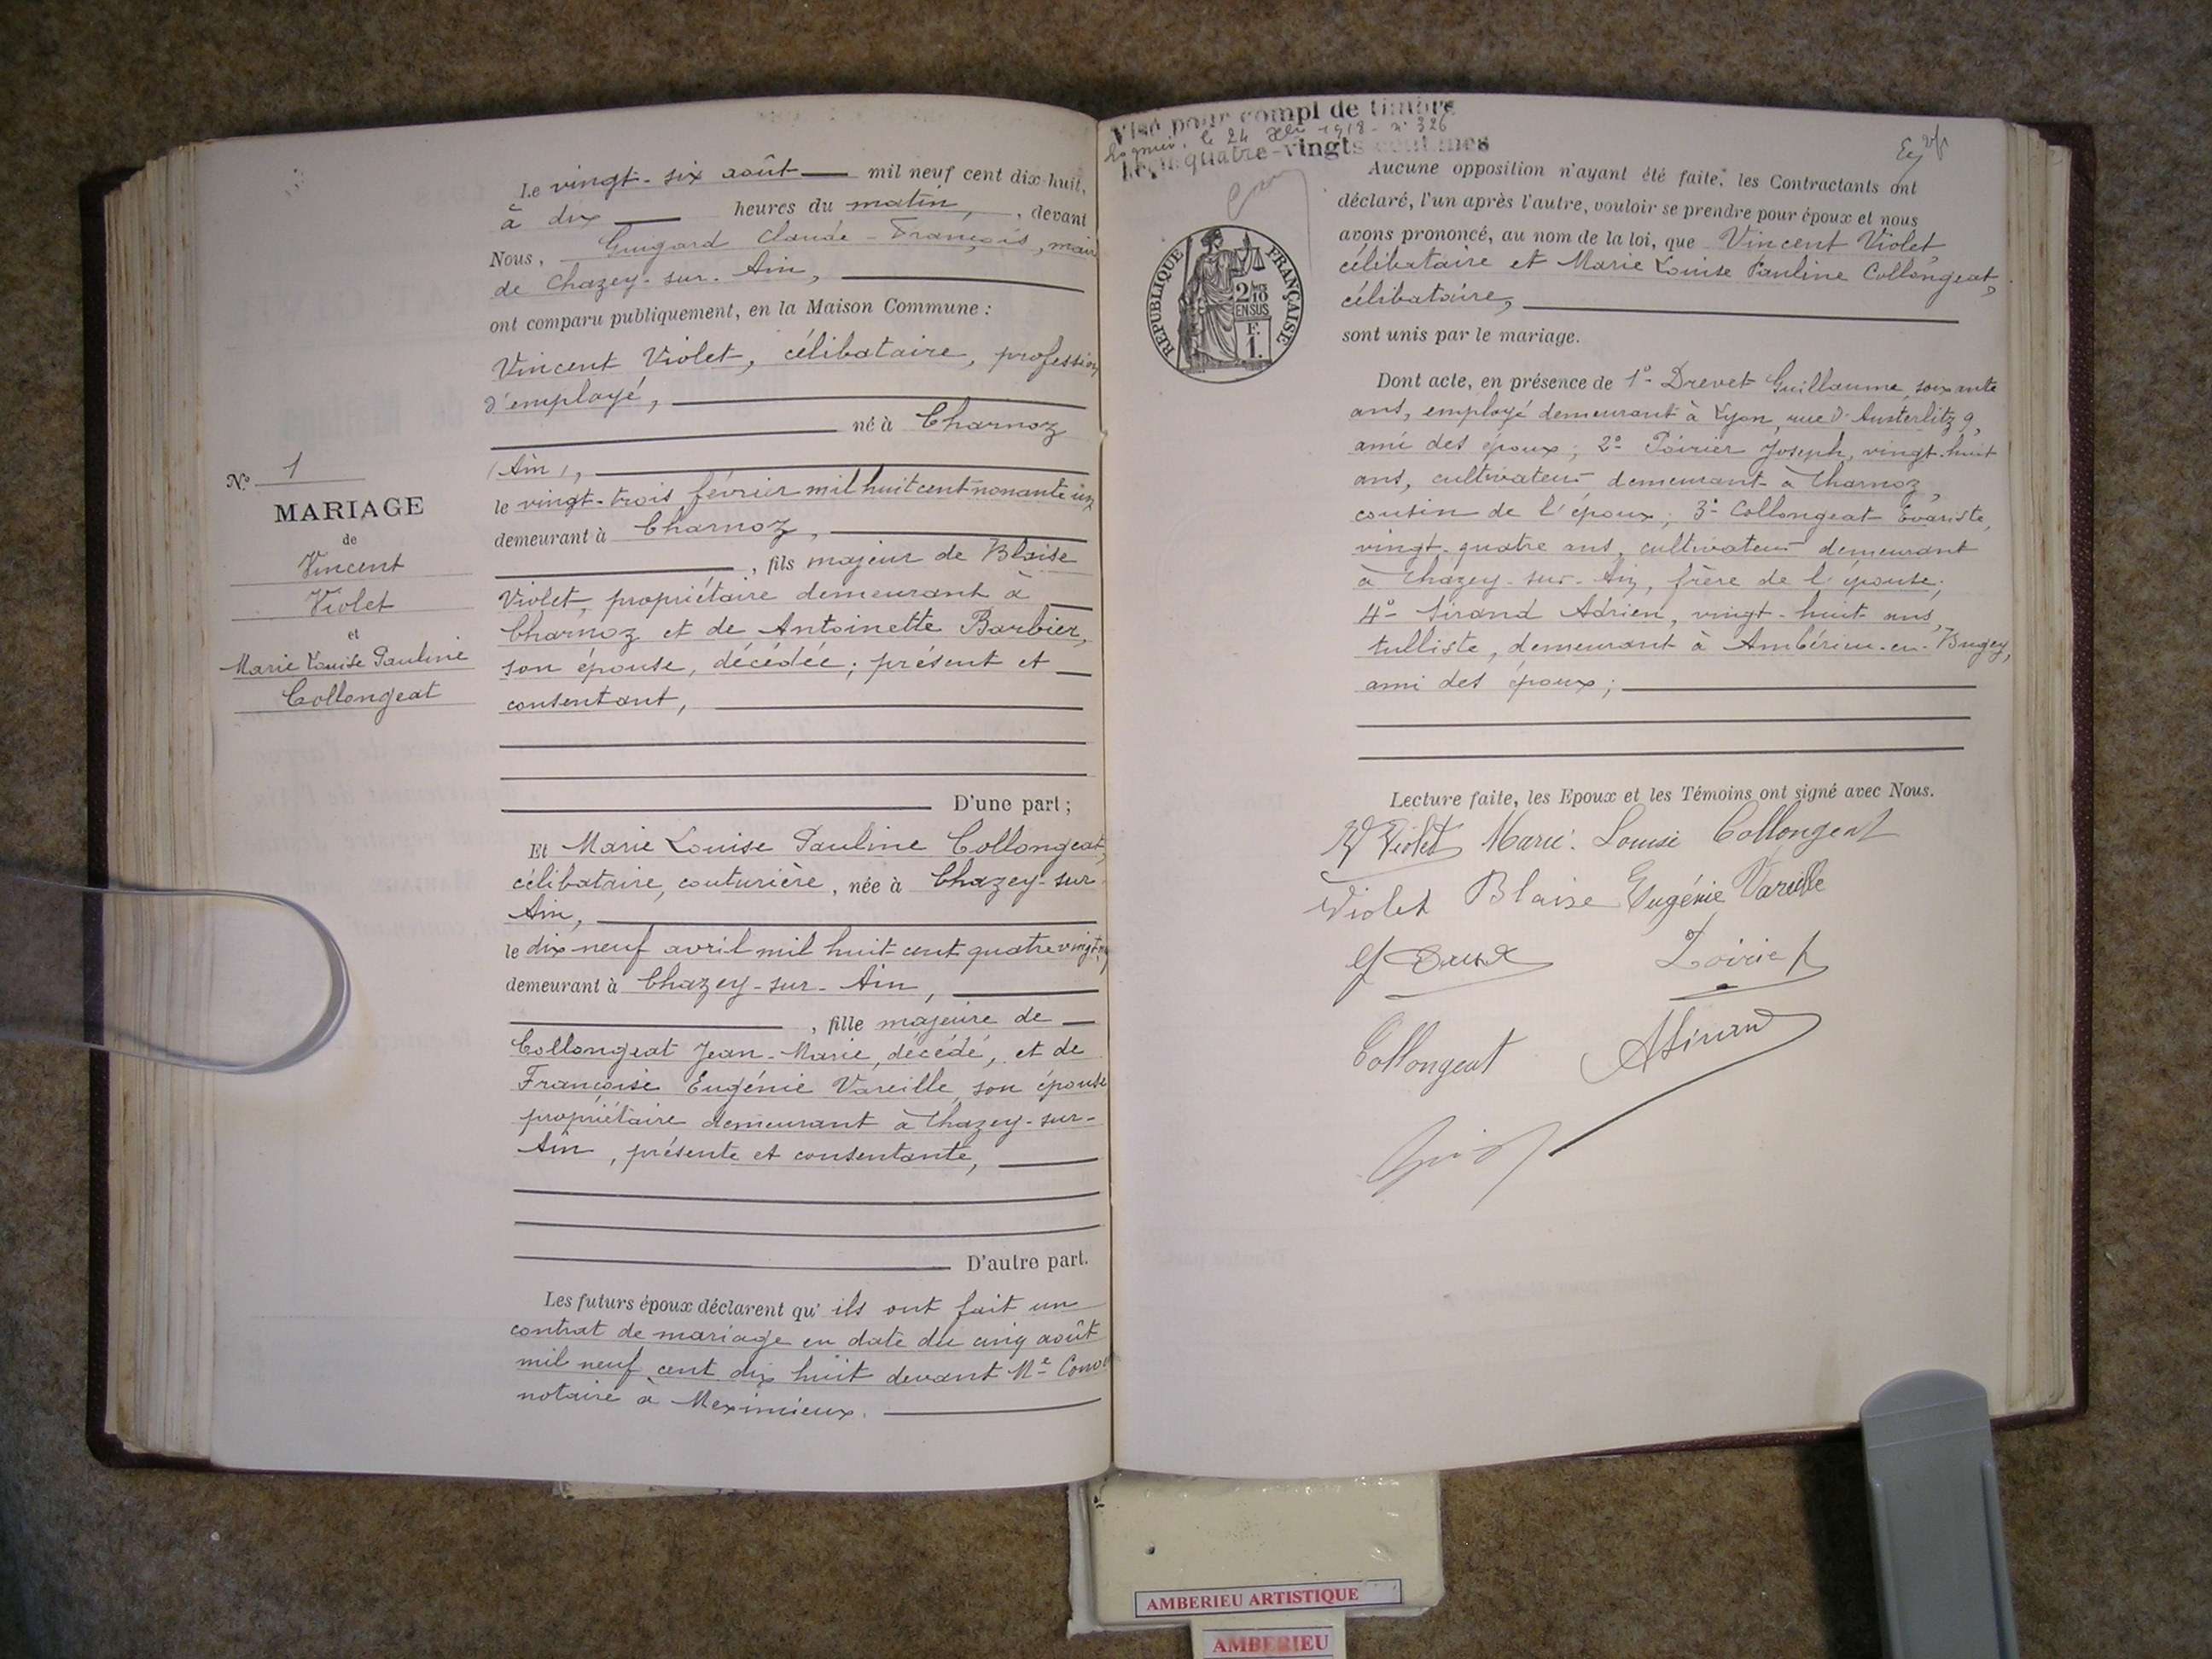 Le vingt-six août mil neuf cent dix-huit,
à dix heures du matin, , devant
Nous, Guigard Claude-François, maire
de Chazey-sur-Ain,
ont comparu publiquement, en la Maison Commune :
Vincent Violet, célibataire, profession
d'employé,
né à Charnoz
(Ain),
le vingt-trois février mil huit cent nonante un
demeurant à Charnoz,
, fils majeur de Blaise
Violet, propriétaire demeurant à
Charnoz et de Antoinette Barbier,
son épouse, décédée; présent et
consentant,
D'une part ;
N° 1
MARIAGE
de
Vincent
Violet
et
Marie Louise Pauline
Collongeat
Et Marie Louise Pauline Collongeat,
célibataire, couturière, née à Chazey-sur
Ain,
le dix-neuf avril mil huit cent quatre vingt
demeurant à Chazey-sur-Ain,
, fille majeure de
Collongeat Jean-Marie, décédé, et de
Françoise Eugénie Vareille son épouse
propriétaire demeurant à Chazey-sur-
Ain, présente et consentante,
D'autre part.
Les futurs époux déclarent qu' ils ont fait un
contrat de mariage en date du cinq août
mil neuf cent dix huit devant Me
notaire à Meximieux.
Visé pour compl de timbre
le 24 1918 - n° 326
quatre-vingts centimes
REPUBLIQUE FRANÇAISE
2/10
EN SUS
F.
1.
Aucune opposition n'ayant été faite, les Contractants ont
déclaré, l'un après l'autre, vouloir se prendre pour époux et nous
avons prononcé, au nom de la loi, que Vincent Violet,
célibataire et Marie Louise Pauline Collongeat,
célibataire,
sont unis par le mariage.
Dont acte, en présence de 1° Drevet Guillaume, soixante
ans, employé demeurant à Lyon, rue d'Austerlitz 9,
ami des époux; 2° Poirier Joseph, vingt-huit
ans, cultivateur demeurant à Charnoz,
cousin de l'époux; 3° Collongeat Evariste,
vingt-quatre ans, cultivateur demeurant
à Chazey-sur-Ain, frère de l'épouse;
4° Sirand Adrien, vingt-huit ans,
tulliste, demeurant à Ambérieu-en-Bugey,
ami des époux;
Lecture faite, les Epoux et les Témoins ont signé avec Nous.
V Violet Marie Louise Collongeat
Violet Blaise Eugénie Vareille
Poirier
Collongeat ASirand
AMBERIEU ARTISTIQUE
AMBERIEU